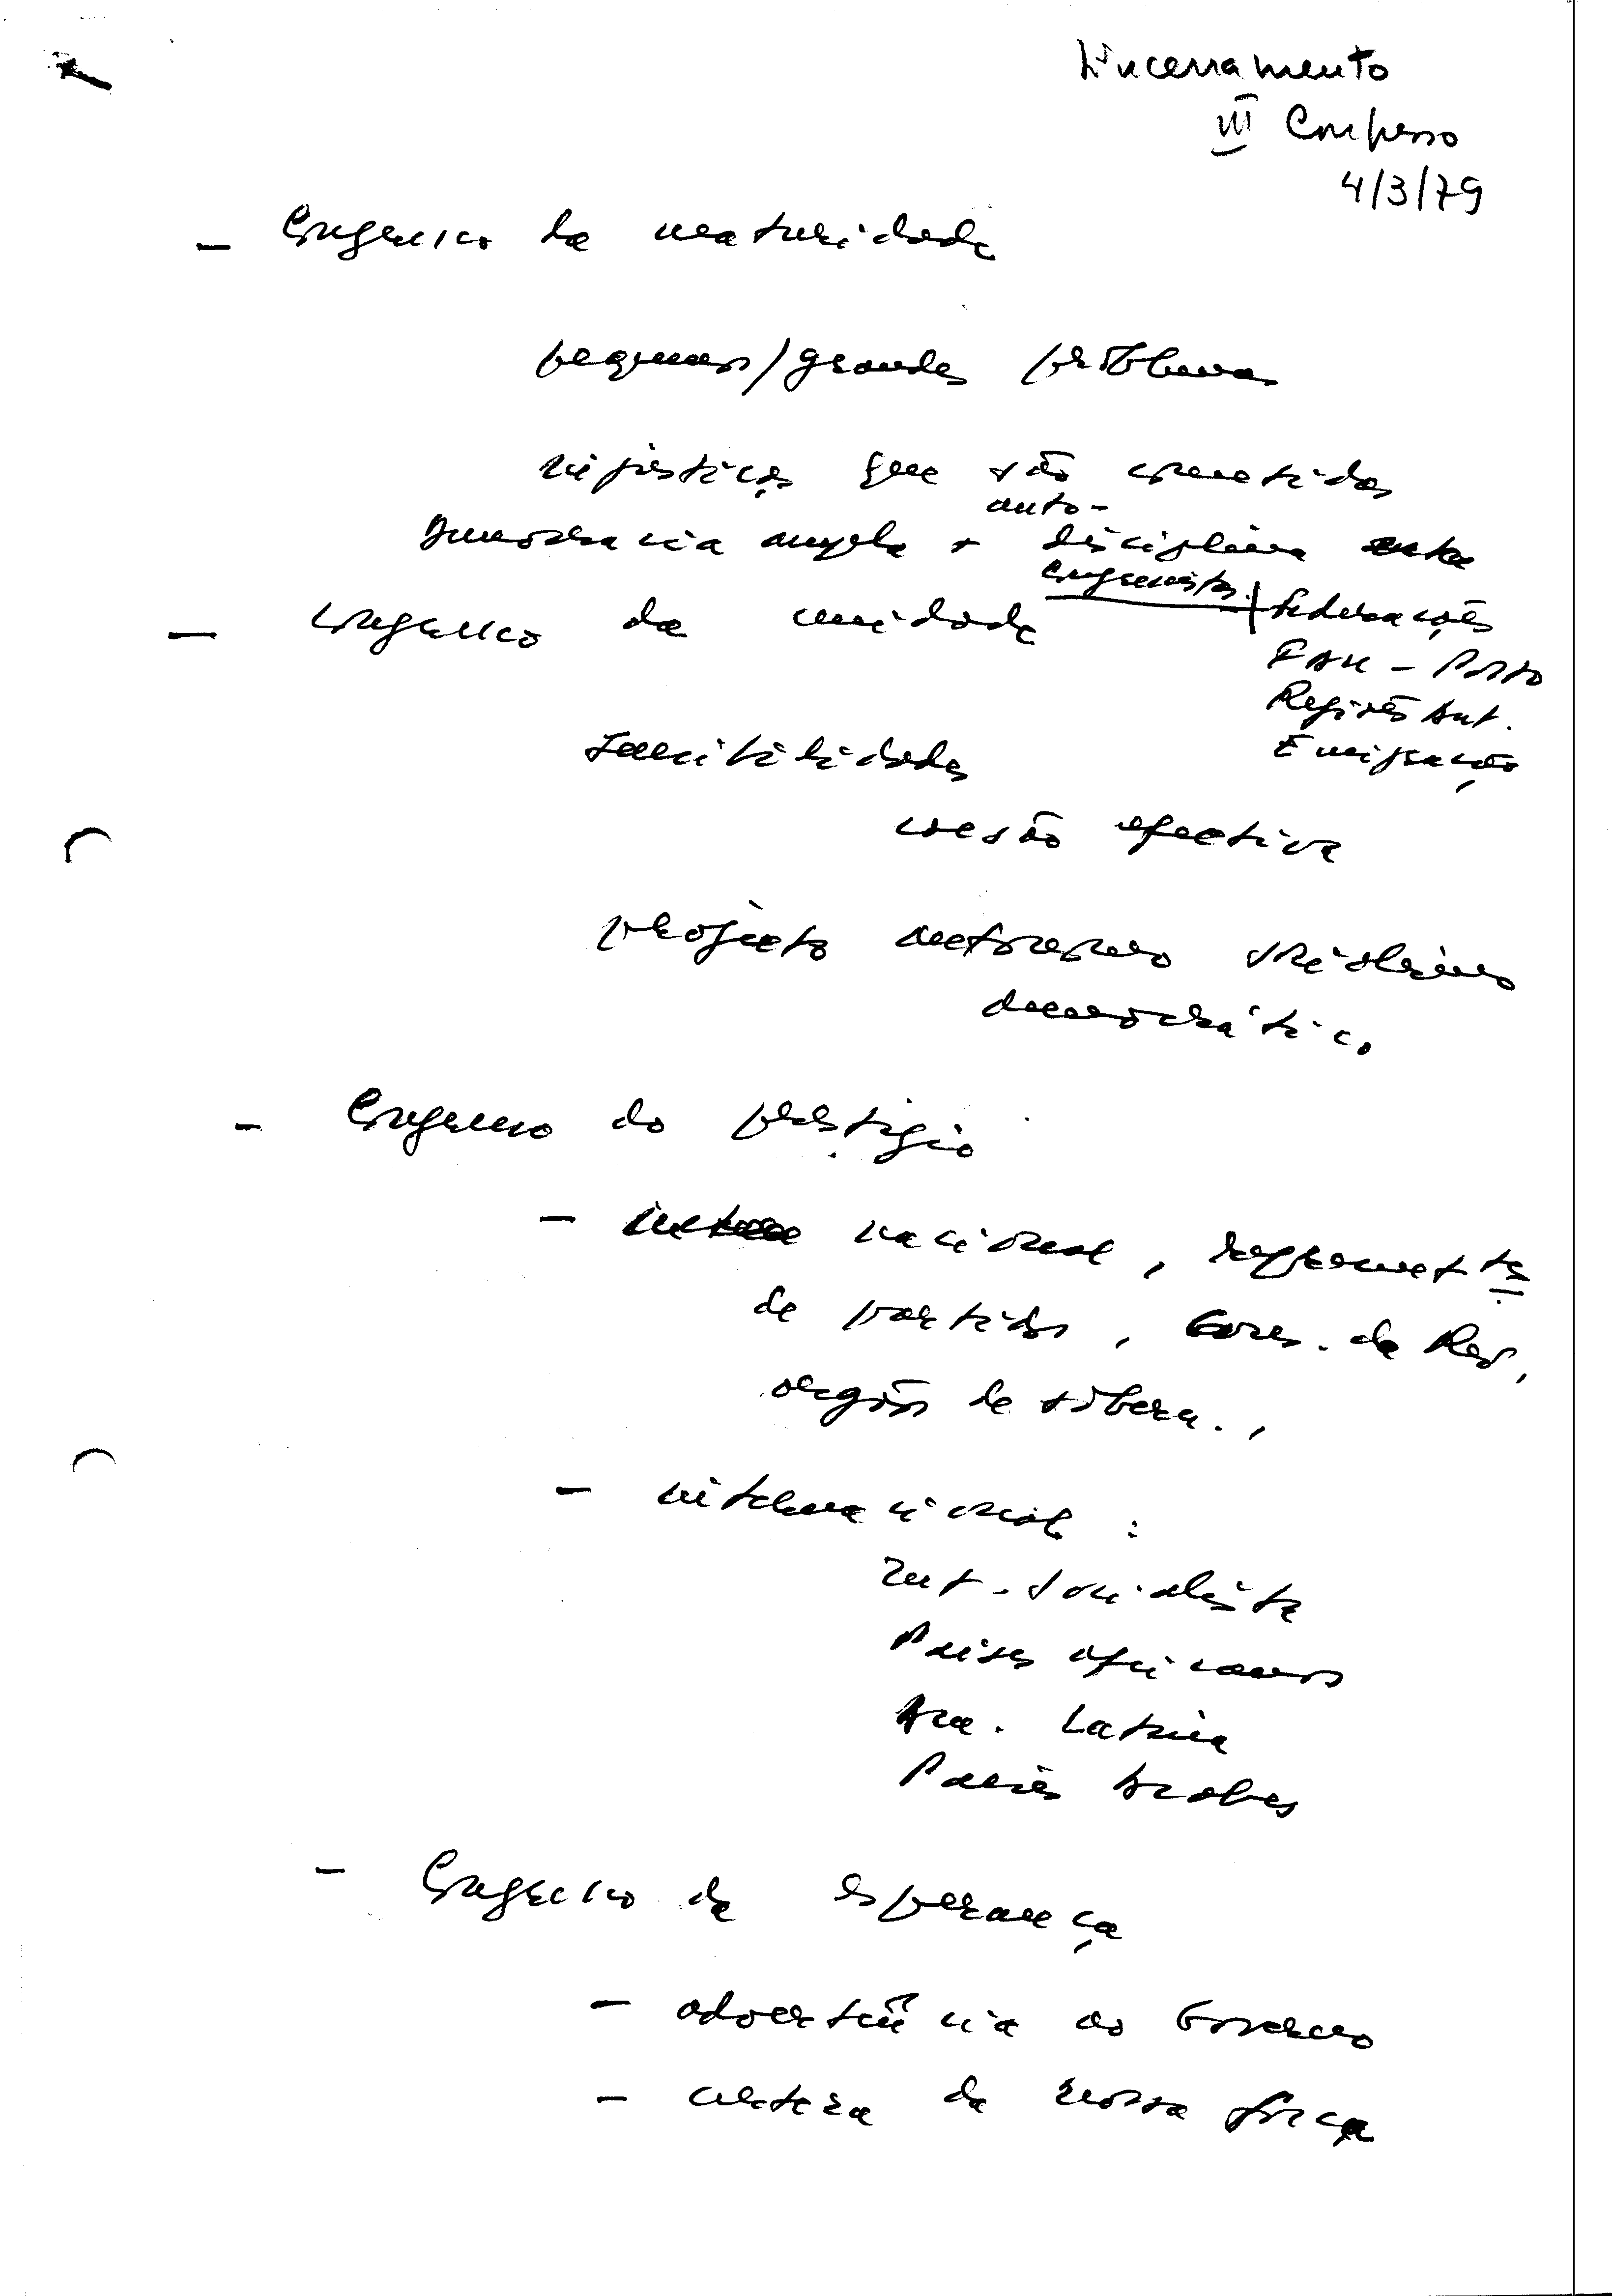 Encerramento
III Congresso
4/3/79
- Congresso da maturidade
pequenos/grandes problemas
injustiças que são cometidas
auto-
Democracia ampla + disciplina
Congressistas
- Congresso da unidade
Federações
FAU - Porto
Regiões Aut.
Emigração
sensibilidades
coesão efectiva
projecto autónomo socialismo
democrático
- Congresso do prestígio
- nacional, representtes
de partidos, Cons. da Rev,
orgãos de sobera.,
- internacional :
Int. Socialista
Paises africanos
Am. Latina
Paises Arabes
- Congresso da esperança
- advertência ao Governo
- certeza da nossa força